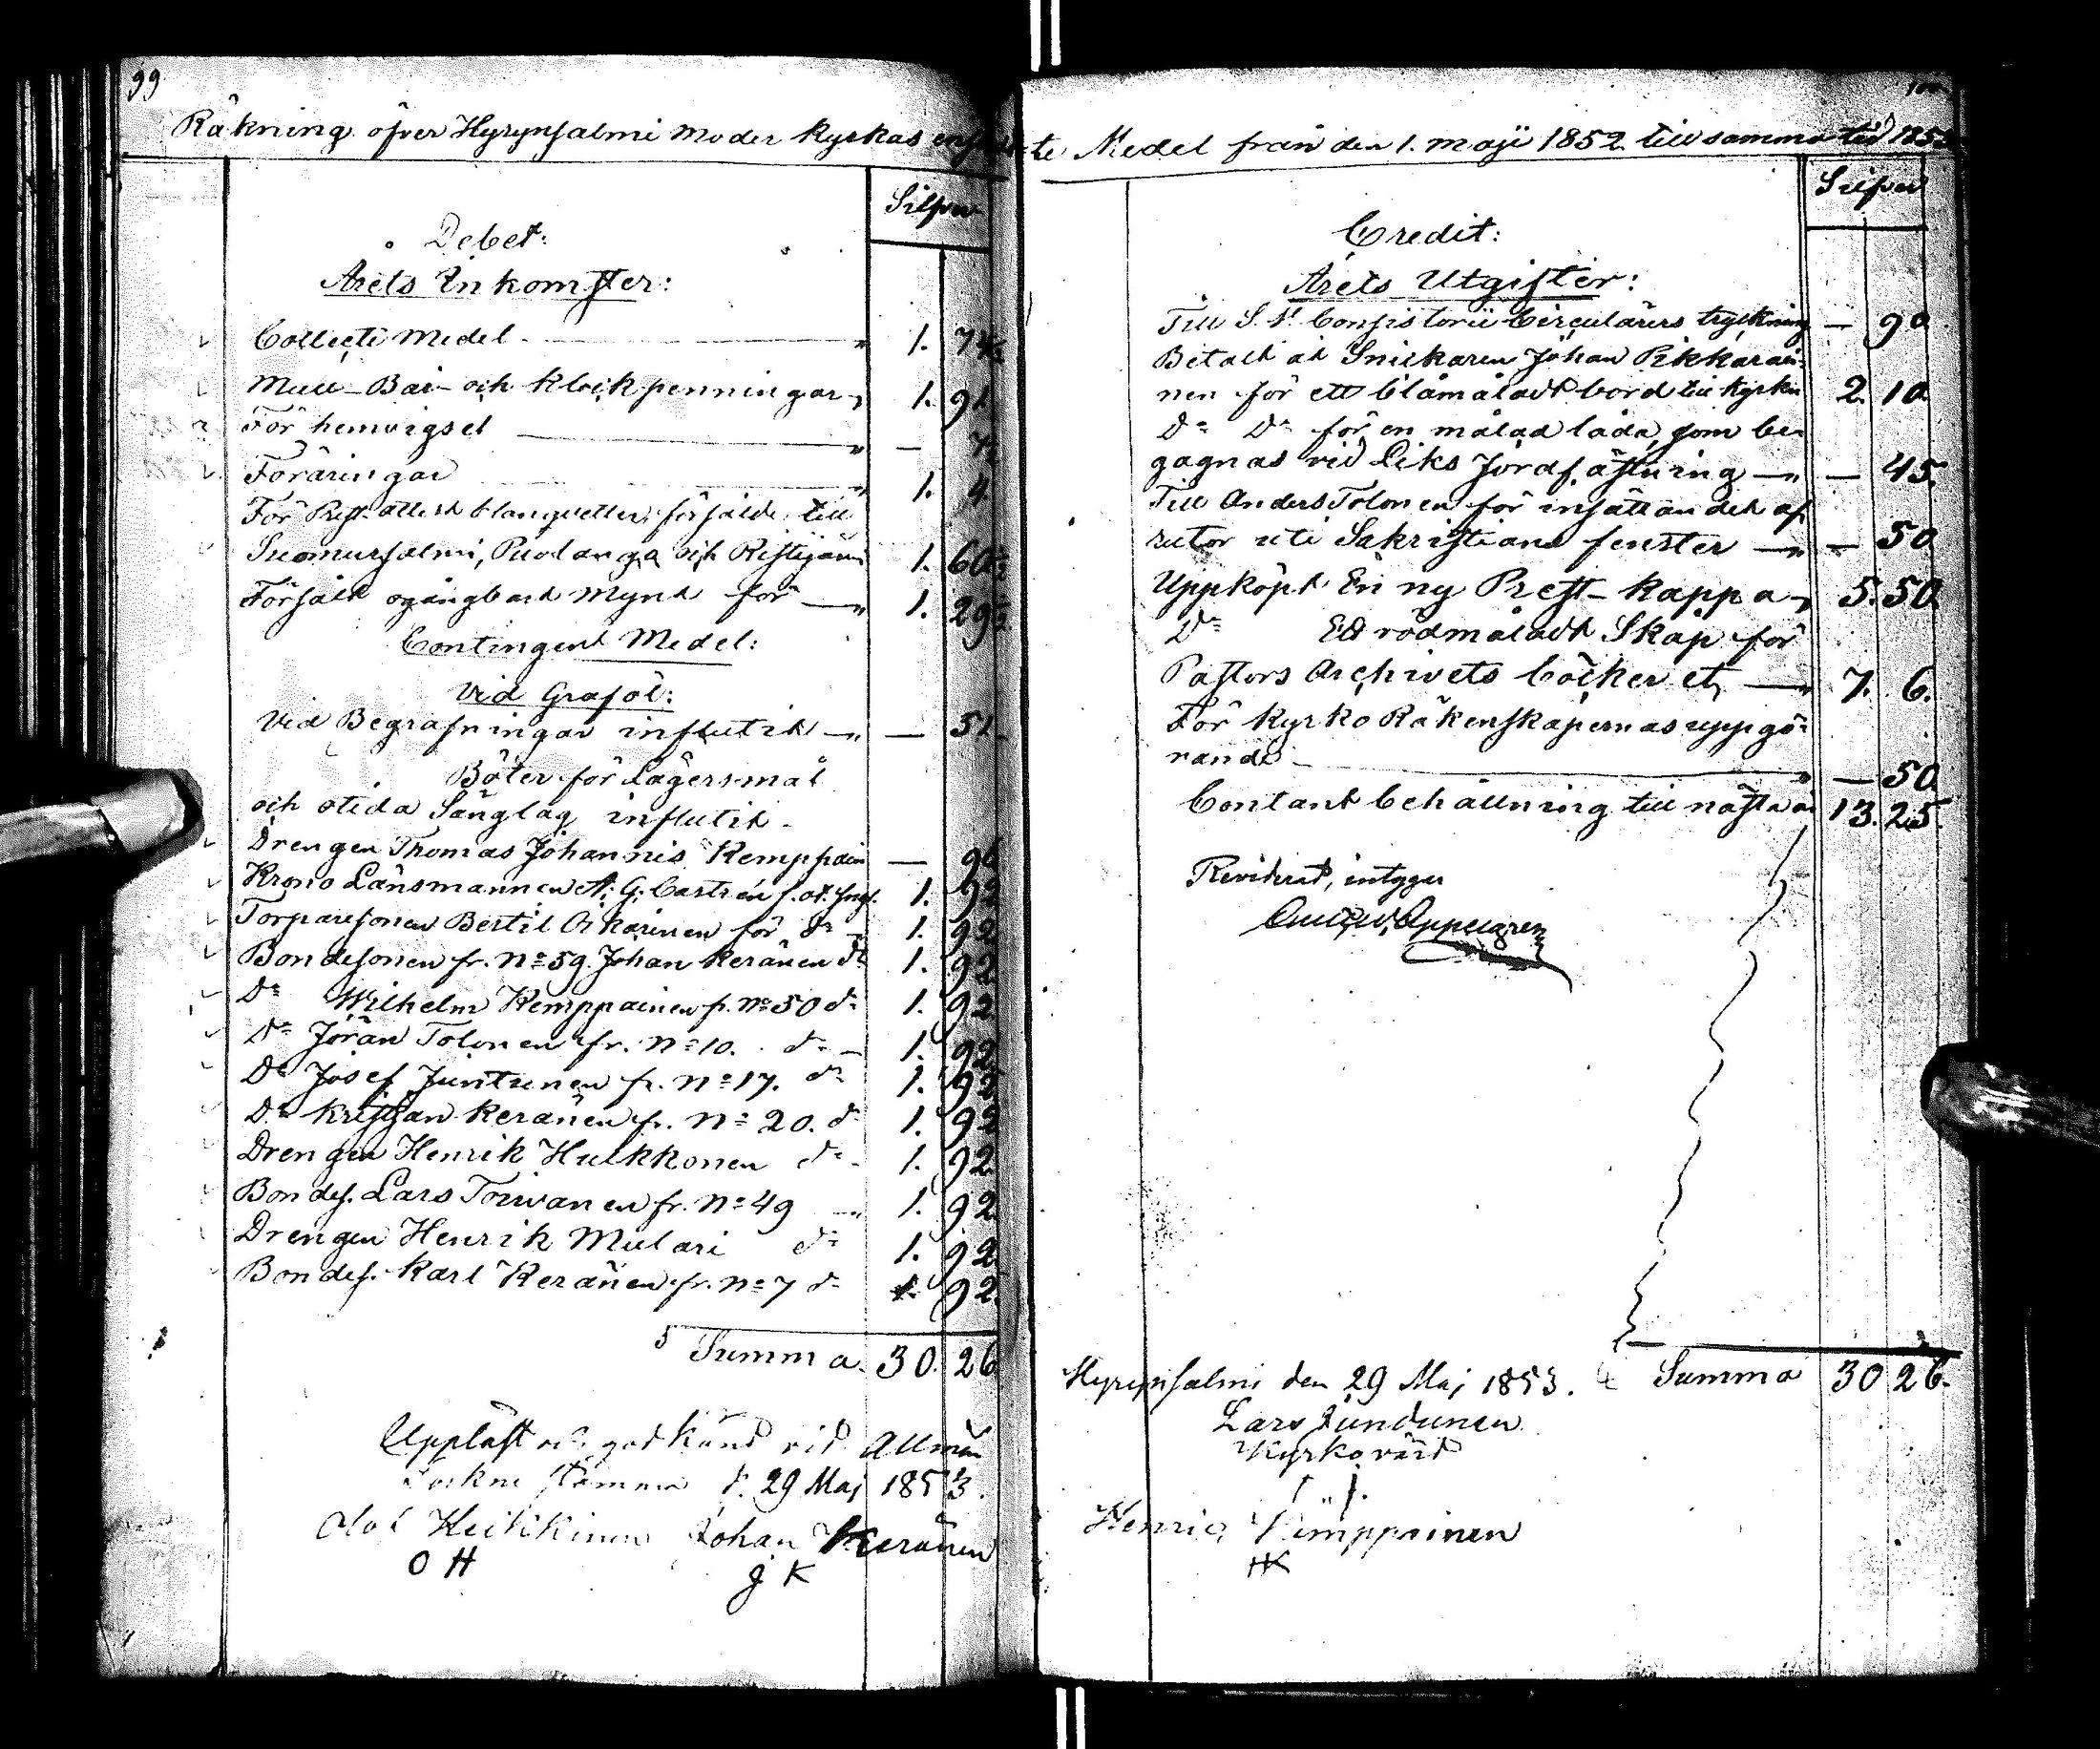 99
Räkning öfver Hyrynsalmi moder kyrkas enskilte Medel från den 1. maji 1852 till samma tid 1853
Silfver
Debet:
Årets Inkomster:
Collecte Medel — " 1. 74½
Mull-Bår- och klockpenningar " 1. 91
För hemvigsel — " — 7
Föräringar — " 1. 4
För Prest-attest blanquetter, försålde till
Suomussalmi, Puolanga och Ristijärvi 1. 60½
Försålt ogångbart mynt för — " 1. 29½
Contingent Medel:
Vid Graföl:
Vid Begrafningar influtit — " — 51
Böter för Lägersmål
och otida Sänglag influtit -
Drengen Thomas Johannis Kemppain — 96
Krono Länsmannen A. G. Castrén f. ot. sngl. 1. 92
Torparesonen Bertil Arkarinen för do 1. 92
Bondesonen fr. No 59. Johan Keränen do 1. 92
Do Wilhelm Kemppainen fr. No 50 do 1. 92
Do Jöran Tolonen fr. No 10. do — 1. 92
Do Josef Juntunen fr. No 17. do 1. 92
Do Kristian Keränen fr. No 20. do 1. 92
Drengen Henrik Hulkkonen do - 1. 92
Bondes. Lars Toivanen fr. No 49 " 1. 92
Drengen Henrik Mulari do 1. 92
Bondes. Karl Keränen fr. No 7 do 1. 92.
Summa. 30. 26
Uppläst och godkänd vid Allmän
Sockne stämma d. 29 Maj 1853.
Olof Heikkinen Johan Keränen
O H J K
100
Silfver
Credit:
Årets Utgifter:
Till S. t. Consistorii Circulärers tryckning — 90
Betalt åt Snickaren Johan Pikkarai-
nen för ett blåmåladt bord till kyrkan 2. 10
Do Do för en målad låda, som be-
gagnas vid Liks Jordfästning — " — 45.
Till Anders Tolonen för insättandet af
rutor uti Sakristians fenster — " — 50
Uppköpt En ny Prest-kappa " 5. 50
Do Ett rödmåladt Skåp för
Pastors Archivets böcker etc — " 7. 6.
För kyrko Räkenskapernas uppgö-
rande — " — 50
Contant behållning till nästa år 13. 25.
Reviderat, intygar
Appelgren
Hyrynsalmi den 29 Maj 1853. Summa 30 26.
Lars Juntunen
Kyrkovärd
Henric Kemppainen
HK